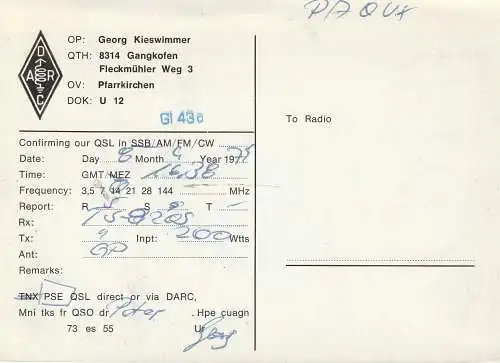 DARC
OP: Georg Kieswimmer
QTH: 8314 Gangkofen
Fleckmühler Weg 3
OV: Pfarrkirchen
DOK: U 12
GI 43c
To Radio
Confirming our QSL in SSB/AM/FM/CW
Date: Day 8 Month 4 Year 197
Time: GMT/MEZ 16,38
Frequency: 3,5 7 14 21 28 144 MHz
Report: R 5 S T -
Rx: TS-820S
Tx: " Inpt: 200 Wtts
Ant: GP
Remarks:
TNX/PSE QSL direct or via DARC,
Mni tks fr QSO dr Peter . Hpe cuagn
73 es 55 Ur Georg